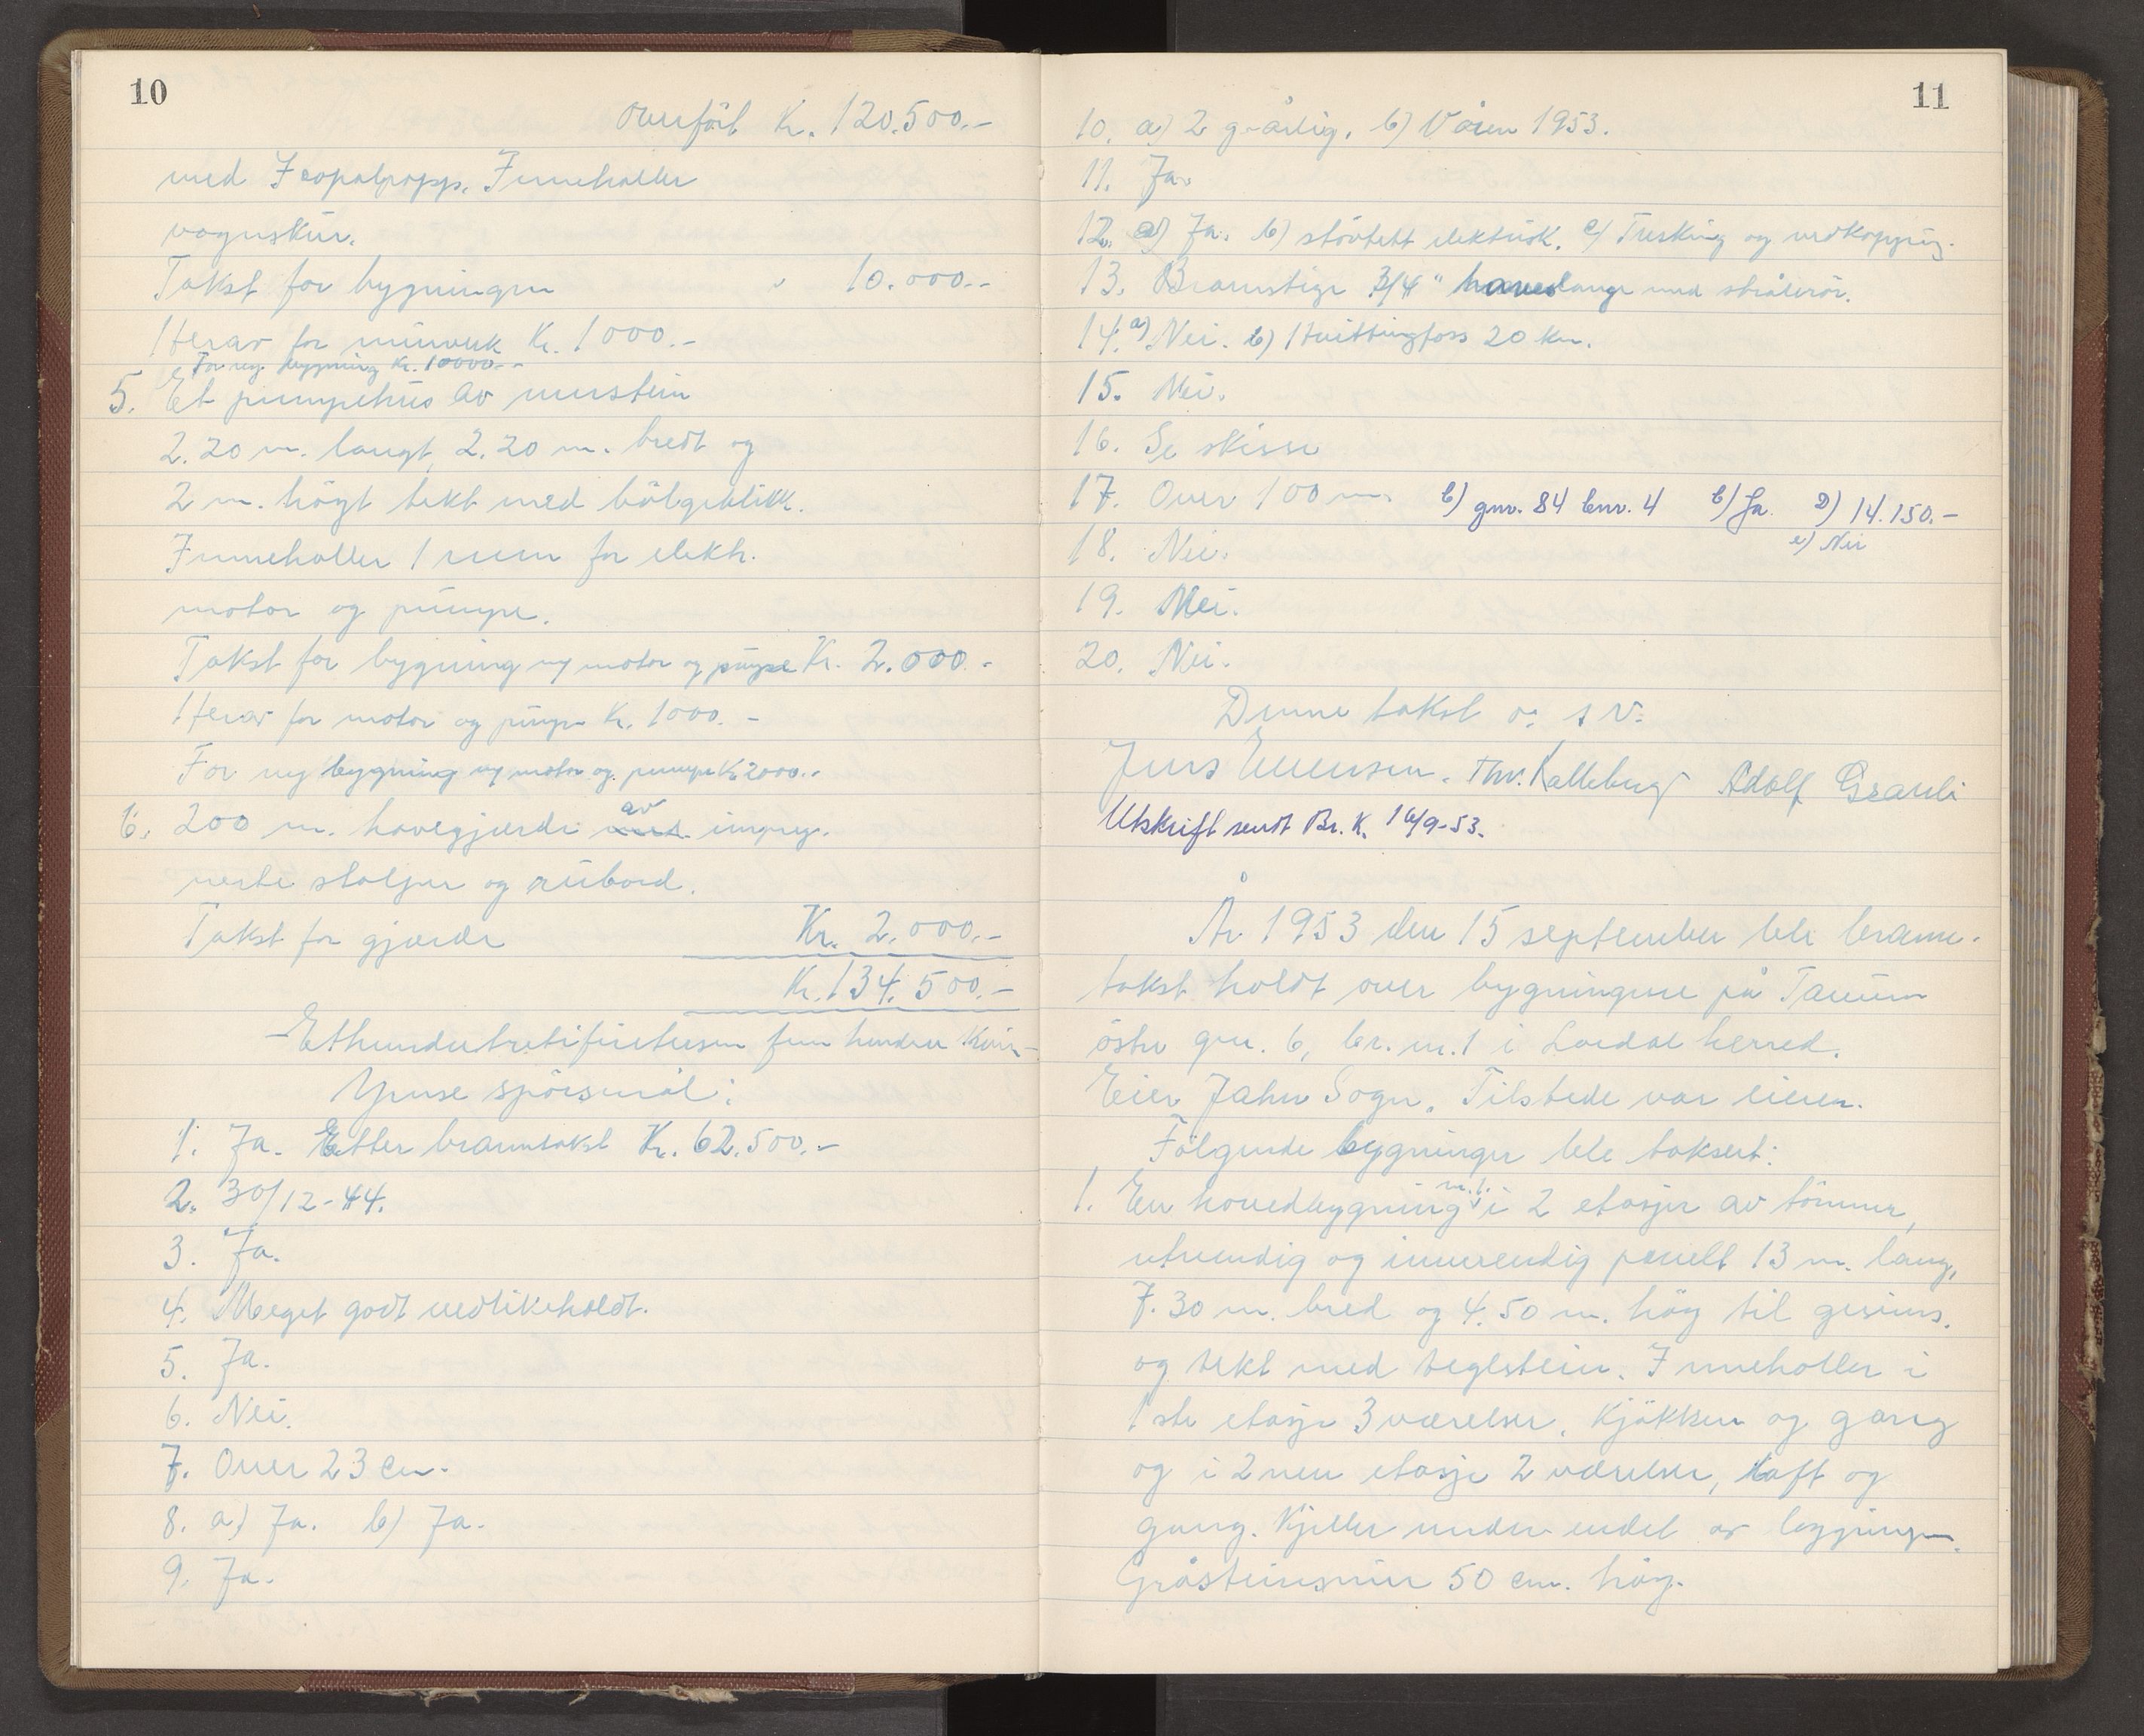 10
Överfört Kr. 120.500.-
med Icopalpapp. Inneholder
vognskur.
Takst for bygningen " 10.000.-
Herav for murverk Kr. 1000.-
For ny bygning Kr. 10000.-
5. Et pumpehus av murstein
2.20 m. langt, 2.20 m. bredt og
2 m. högt tekt med bölgeblikk.
Inneholder 1 rum for elektr.
motor og pumpe.
Takst for bygning og motor og pumpe Kr. 2.000.-
Herav for motor og pumpe Kr. 1000.-
For ny bygning og motor og pumpe Kr 2000.-
6. 200 m. havegjærde med av impreg-
nerte stolper og rubord.
Takst for gjærde Kr. 2.000.-
Kr. 134.500.-
- Ethundretrettifiretusen fem hundre Kroner -
Ymse spörsmål:
1. Ja. Etter branntakst Kr. 62.500.-
2. 30/12-44.
3. Ja.
4. Meget godt vedlikeholdt.
5. Ja.
6. Nei.
7. Over 23 cm.
8. a) Ja. b) Ja.
9. Ja.
11
10. a) 2 g. årlig. b) Våren 1953.
11. Ja.
12. a) Ja. b) stövtett elektrisk. c) Tresking og vedkapping.
13. Brannstige 3/4" haveslange med strålerör.
14. a) Nei. b) Hvittingfoss 20 km.
15. Nei.
16. Se skisse
17. Over 100 m. b) gnr. 84 bnr. 4 c) Ja. d) 14.150.-
e) Nei
18. Nei.
19. Nei.
20. Nei.
Denne takst o. s v.
Jens Evensen. Thv. Kalleberg Adolf Grauli
Utskrift sendt Br. K. 16/9-53.
År 1953 den 15 september ble brann-
takst holdt over bygningene på Tanum
östre gnr. 6, br. nr. 1 i Lardal herred.
Eier Jahn Sogn. Tilstede var eieren.
Fölgende bygninger ble taksert:
1. En hovedbygning nr. 1. i 2 etasjer av tömmer,
utvendig og innvendig panelt 13 m. lang,
7.30 m. bred og 4.50 m. höy til gesims.
og tekt med teglstein. Inneholder i
1ste etasje 3 værelser, kjökken og gang
og i 2nen etasje 2 værelser, loft og
gang. Kjeller under endel av bygningen.
Gråsteinsmur 50 cm. höy.